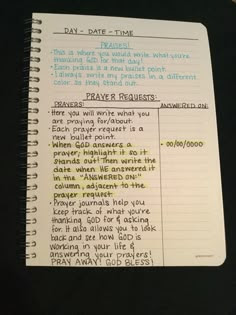 DAY - DATE - TIME
PRAISES!
· This is where you would write what you're
thanking GOD for that day!
· Each praise is a new bullet point.
· I always write my praises in a different
color, so they stand out!
PRAYER REQUESTS:
PRAYERS: ANSWERED ON:
· Here you will write what you
are praying for/about.
· Each prayer request is a
new bullet point.
· When GOD answers a · 00/00/0000
prayer, highlight it so it
stands out! Then write the
date when HE answered it
in the "ANSWERED ON:"
column, adjacent to the
prayer request.
· Prayer journals help you
keep track of what you're
thanking GOD for & asking
for. It also allows you to look
back and see how GOD is
working in your life &
answering your prayers!
PRAY AWAY! GOD BLESS!